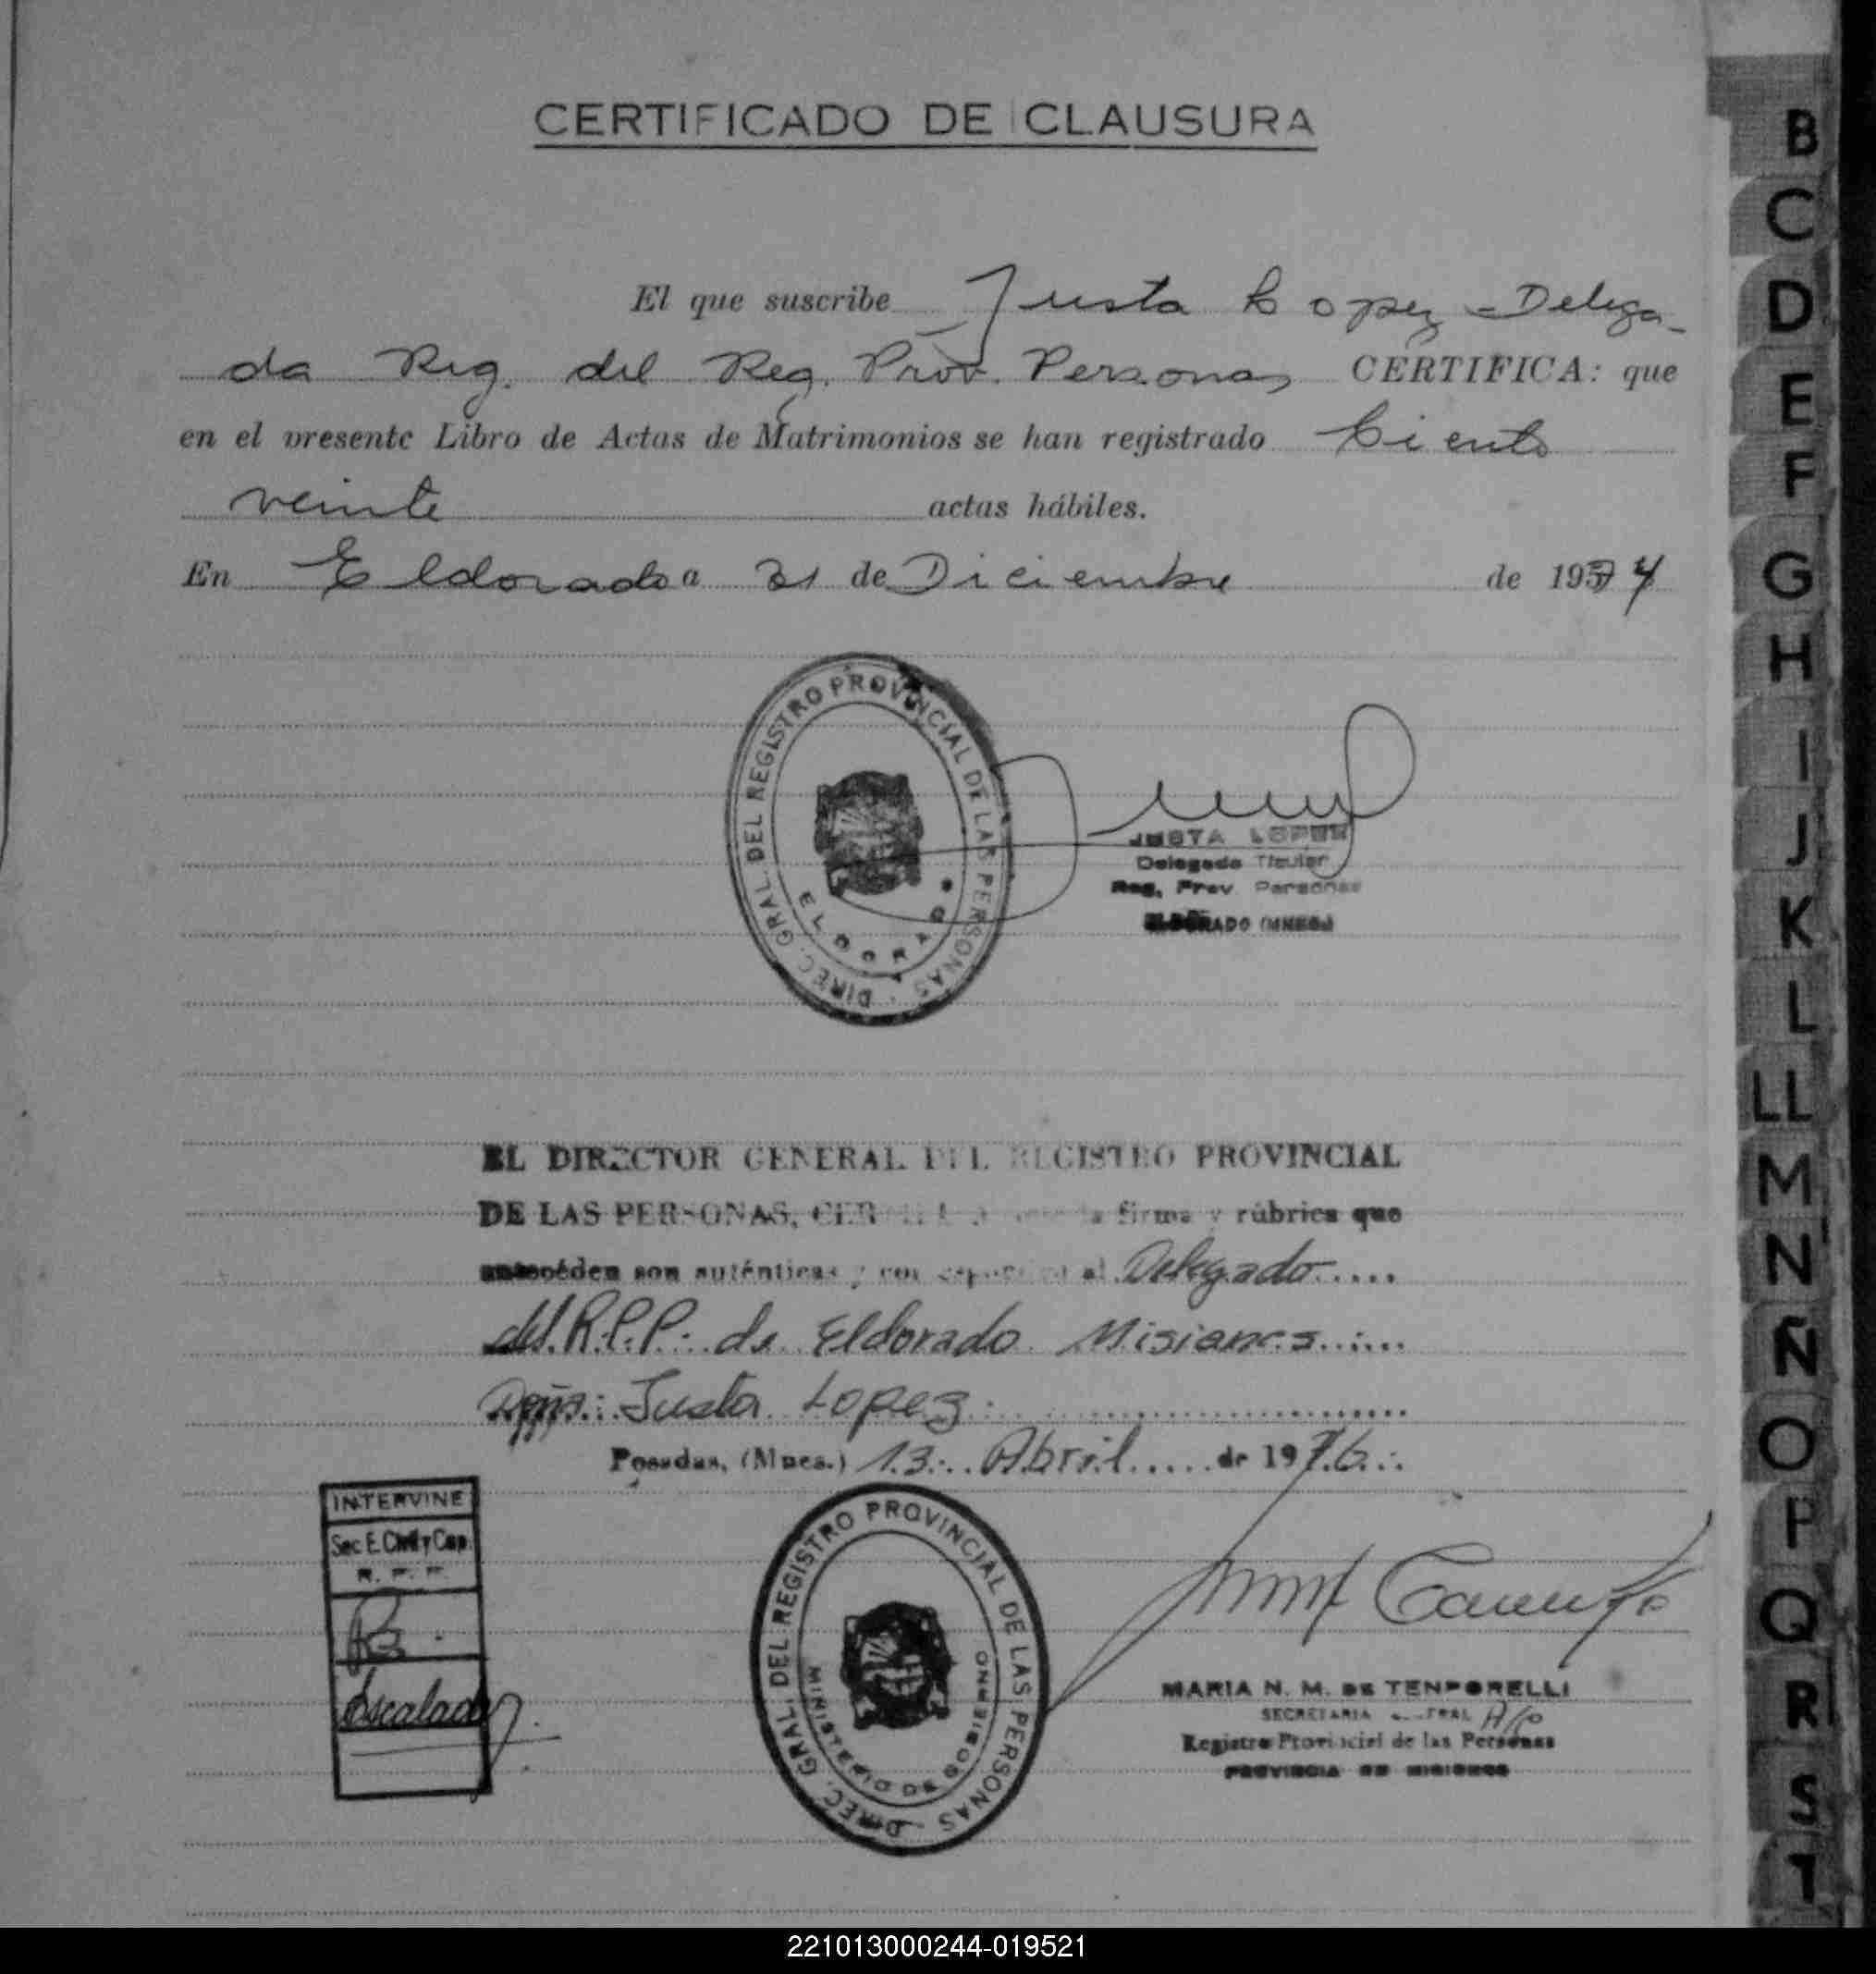 CERTIFICADO DE CLAUSURA
El que suscribe Justa Lopez - Delega-
da Reg. del Reg. Prov. Personas CERTIFICA: que
en el presente Libro de Actas de Matrimonios se han registrado Ciento
veinte actas hábiles.
En Eldorado a 31 de Diciembre de 1974
DIREC. GRAL. DEL REGISTRO PROVINCIAL DE LAS PERSONAS
ELDORADO
JUSTA LOPEZ
Delegada Titular
Reg. Prov. Personas
ELDORADO (MNES.)
EL DIRECTOR GENERAL DEL REGISTRO PROVINCIAL
DE LAS PERSONAS, la firma y rúbrica que
anteceden son auténticas y al Delegado
del R.P.P. de Eldorado Misiones
Justa Lopez
Posadas, (Mnes.) 13 Abril de 1976
INTERVINE
Sec E. Civil y Cap.
R. P. P.
Escalada
DIREC. GRAL. DEL REGISTRO PROVINCIAL DE LAS PERSONAS
MINISTERIO DE GOBIERNO
MARIA N. M. DE TEMPORELLI
SECRETARIA A/C
Registro Provincial de las Personas
PROVINCIA DE MISIONES
B
C
D
E
F
G
H
I
J
K
L
LL
M
N
Ñ
O
P
Q
R
S
T
221013000244-019521